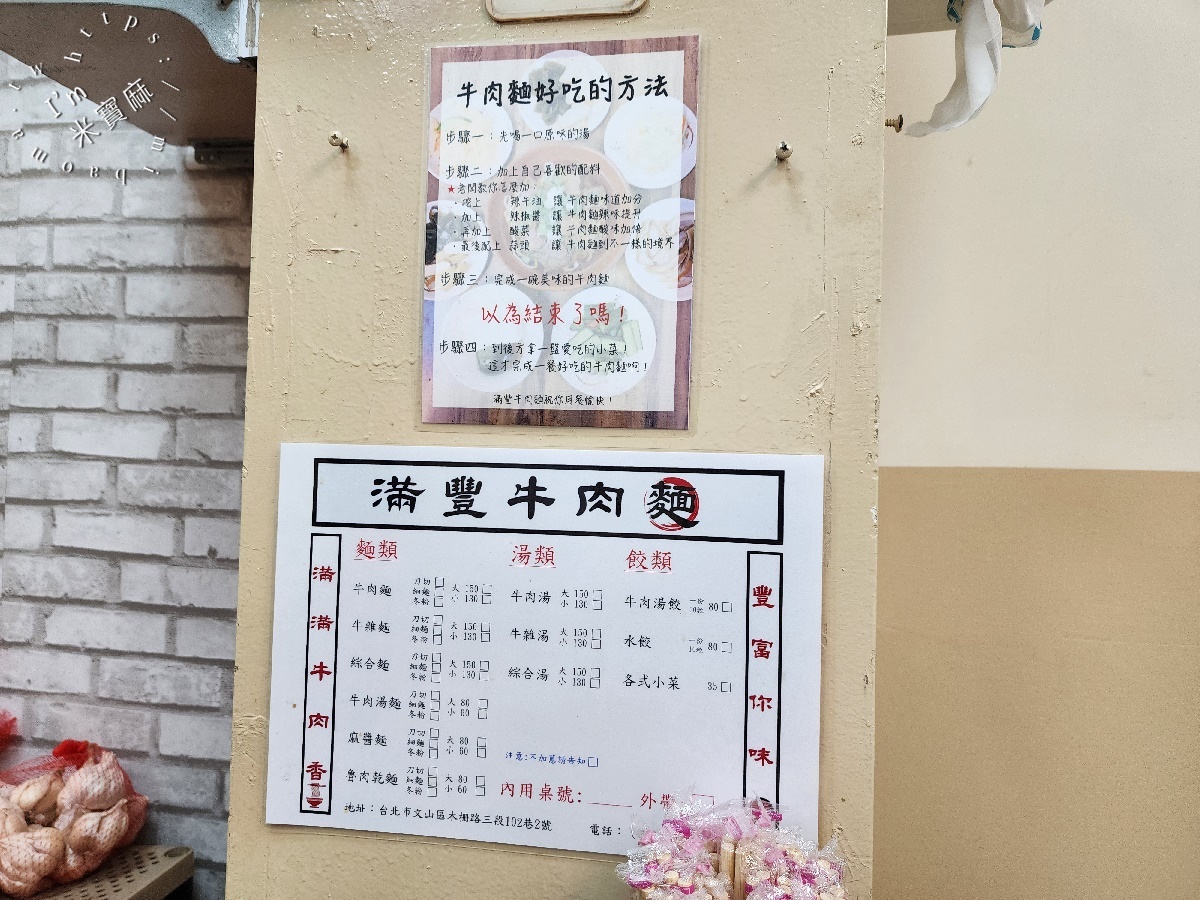 https://mibaoma.tw
I'm
米寶麻
牛肉麵好吃的方法
步驟一：先喝一口原味的湯
步驟二：加上自己喜歡的配料
★老闆教你怎麼加：
・挖上 辣牛油 讓牛肉麵味道加分
・加上 辣椒醬 讓牛肉麵辣味提升
・再加上 酸菜 讓牛肉麵酸味加倍
・最後配上 蒜頭 讓牛肉麵到不一樣的境界
步驟三：完成一碗美味的牛肉麵
以為結束了嗎！
步驟四：到後方拿一盤愛吃的小菜！
這才完成一餐好吃的牛肉麵啊！
滿豐牛肉麵祝你用餐愉快！
滿豐牛肉麵
滿滿牛肉香
麵類
牛肉麵 刀切□ 細麵□ 冬粉□ 大 150□ 小 130□
牛雜麵 刀切□ 細麵□ 冬粉□ 大 150□ 小 130□
綜合麵 刀切□ 細麵□ 冬粉□ 大 150□ 小 130□
牛肉湯麵 刀切□ 細麵□ 冬粉□ 大 80□ 小 60□
麻醬麵 刀切□ 細麵□ 冬粉□ 大 80□ 小 60□
魯肉乾麵 刀切□ 細麵□ 冬粉□ 大 80□ 小 60□
湯類
牛肉湯 大 150□ 小 130□
牛雜湯 大 150□ 小 130□
綜合湯 大 150□ 小 130□
餃類
牛肉湯餃 一份 10粒 80□
水餃 一份 10粒 80□
各式小菜 35□
豐富你味
注意：不加蔥請告知□
內用桌號：＿＿＿ 外帶□
地址：台北市文山區木柵路三段102巷2號
電話：